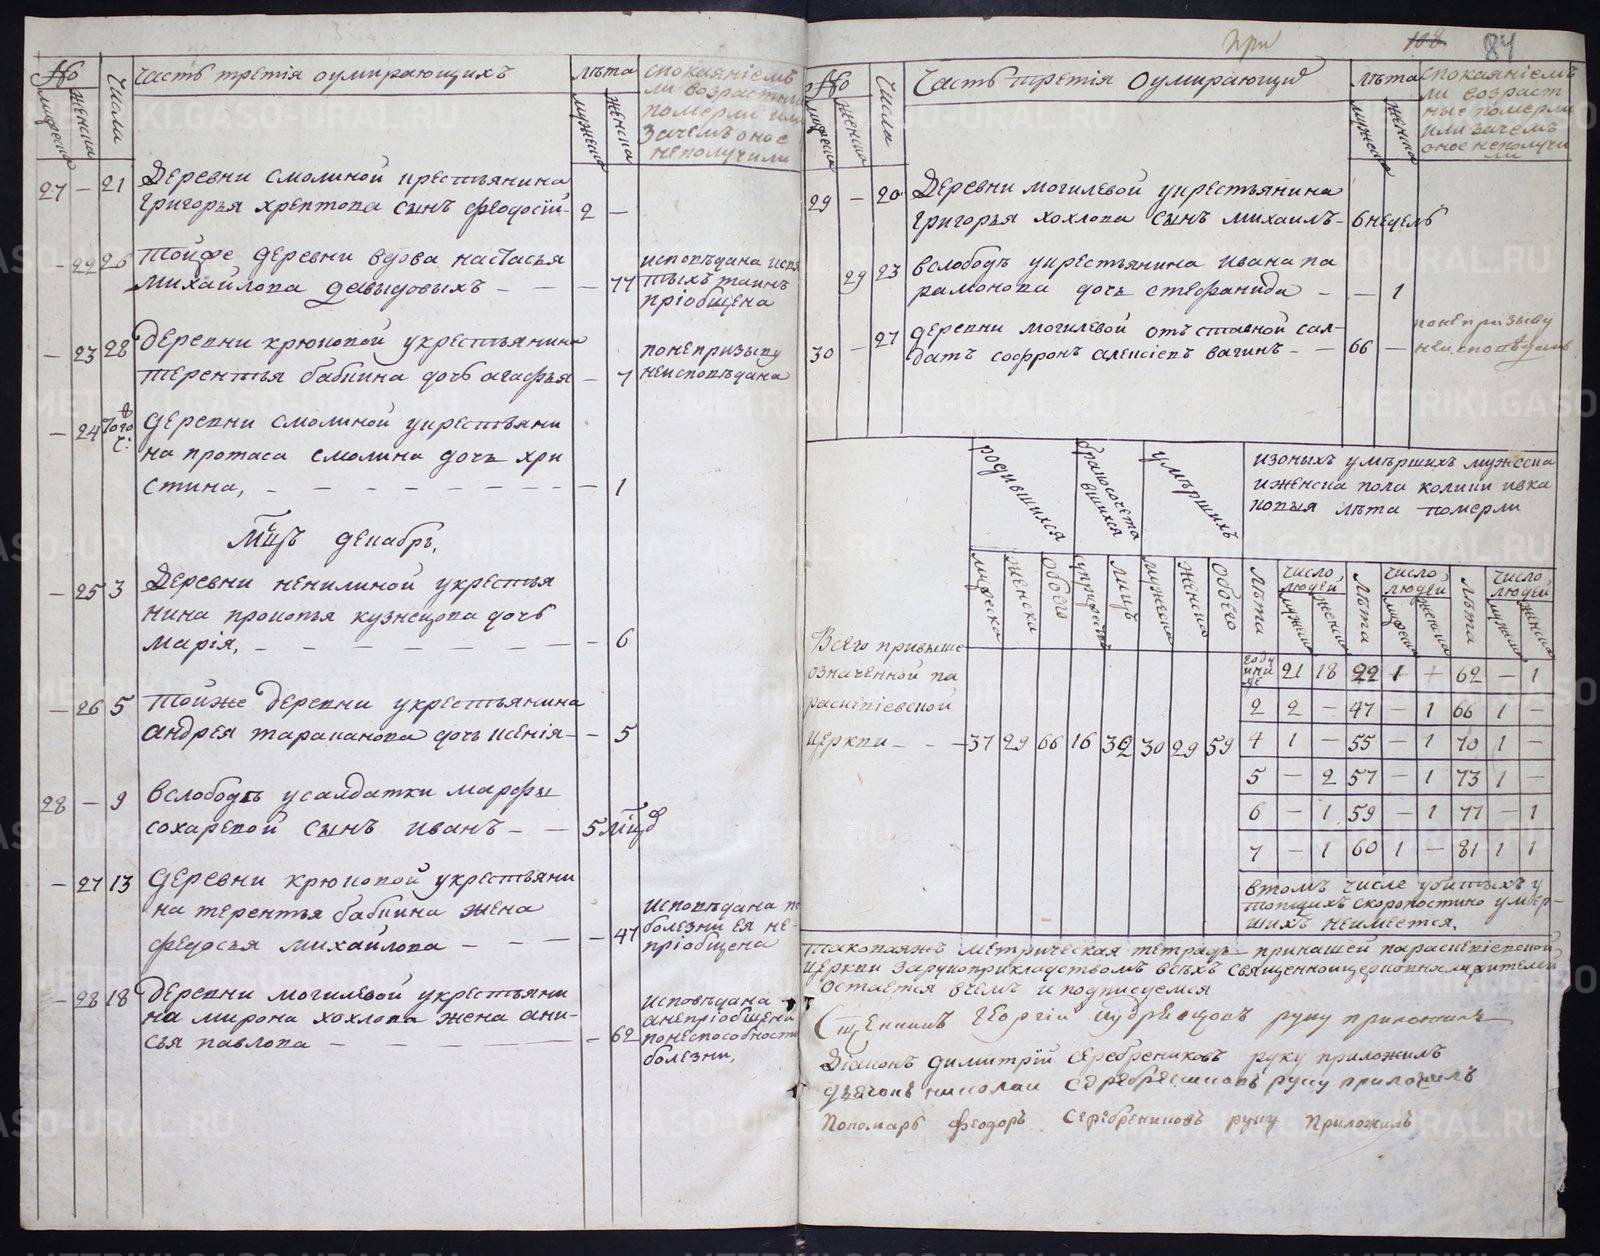 №
мужеска
женска
Числа
Часть третія оумирающихъ
лѣта
мужеска
женска
спокаяніемъ
ли возрастныи
померли или
зачемъ оное
неполучили
27 — 21 Деревни смолиной крестьянина
григорья хрептова сынъ феодосій - 2 —
- 22 26 тойже деревни вдова настасья
михайлова давыдовыхъ — — — 77
исповѣдана исвя
тыхъ таинъ
пріобщена
- 23 28 деревни крюковой укрестьянина
терентья бабкина дочь агафья — 7
поне призыву
неисповѣдана
- 24 того ч: деревни смолиной укрестьяни
на протаса смолина дочь хри
стина, — — — — — — — — 1
Мцъ декабрь,
- 25 3 Деревни ненилиной укрестья
нина прокопья кузнецова дочь
марія, — — — — — — — 6
- 26 5 тойже деревни укрестьянина
андрея тараканова дочь ксенія — — 5
28 — 9 вслободѣ усалдатки марфы
сохаревой сынъ иванъ — — 5 мцъ
- 27 13 деревни крюковой укрестьяни
на терентья бабкина жена
федосья михайлова — — — — 47
исповѣдана по
болезни ея не-
пріобщена
- 28 18 деревни могилевой укрестьяни
на мирона хохлова жена ани-
сья павлова — — — — — 62
исповѣдана
анепріобщена
понеспособности
болезни,
при
108 84
№
мужеска
женска
Числа
Часть третія Оумирающи
лѣта
мужеска
женска
спокаяніемъ
ли возраст
ные померли
или зачемъ
оное неполучи
ли
29 — 20 Деревни могилевой укрестьянина
григорья хохлова сынъ михаилъ - 6 недель
29 23 вслободѣ укрестьянина ивана па
рамонова дочь стефанида — — 1
30 — 27 деревни могилевой отъставной сал-
датъ софронъ алексіевъ вагинъ — — 66 —
поне призыву
неисповѣданъ
родившихся
бракосочета
вшихся
умѣршихъ
изоныхъ умѣршихъ мужеска
иженска пола колики ивка
ковыя лѣта померли
мужеска
женска
обоего
супружествъ
лицъ
мужеска
женска
обоего
лѣта
число
людей
мужеска
женска
лѣта
число
людей
мужеска
женска
лѣта
число
людей
мужеска
женска
Всего привыше
означенной па
раскевіевской
церкви — — — 37 29 66 16 32 30 29 59
году
ини
же 21 18 22 1 + 62 — 1
2 2 — 47 — 1 66 1 —
4 1 — 55 — 1 70 1 —
5 — 2 57 — 1 73 1 —
6 — 1 59 — 1 77 — 1
7 — 1 60 1 — 81 1 1
втомъ числе убитыхъ у
топшихъ скоропостижно умер-
шихъ неимеется,
таковаяжъ метрическая тетрадь принашей параскевіевской
церкви зарукоприкладствомъ всѣхъ священноицерковнослужителей
остается вчемъ и подписуемся
Сщенникъ Георгіи Кудрявцовъ руку приложилъ
Діаконъ димитрій серебрениковъ руку приложилъ
дьячокъ николаи серебрениковъ руку приложилъ
Пономарь феодоръ серебрениковъ руку приложилъ
METRIKI.GASO-URAL.RU